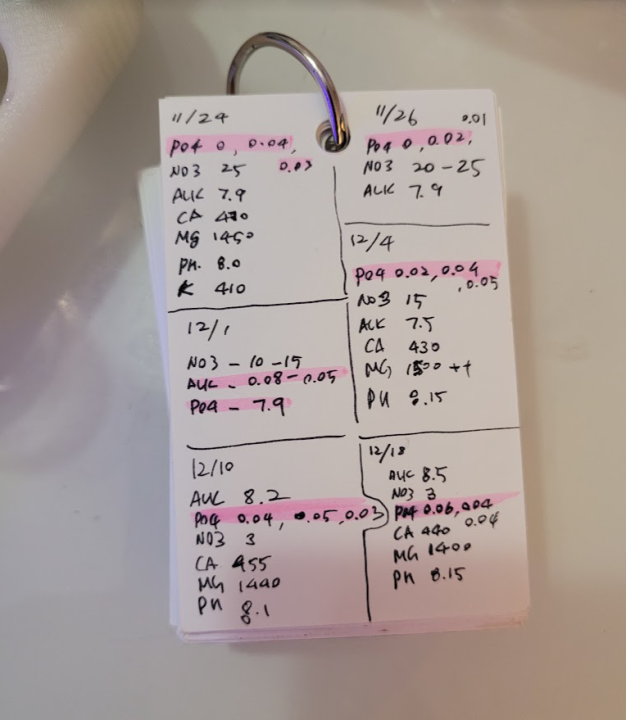 11/24
PO4 0, 0.04,
0.03
NO3 25
ALK 7.9
CA 430
MG 1450
PH. 8.0
K 410
11/26
0.01
PO4 0, 0.02,
NO3 20-25
ALK 7.9
12/1
NO3 - 10-15
ALK - 0.08-0.05
PO4 - 7.9
12/4
PO4 0.02, 0.04
,0.05
NO3 15
ALK 7.5
CA 430
MG 1500 ++
PH 8.15
12/10
ALK 8.2
PO4 0.04, 0.05, 0.03
NO3 3
CA 455
MG 1440
PH 8.1
12/18
ALK 8.5
NO3 3
PO4 0.06, 0.04
0.04
CA 440
MG 1400
PH 8.15